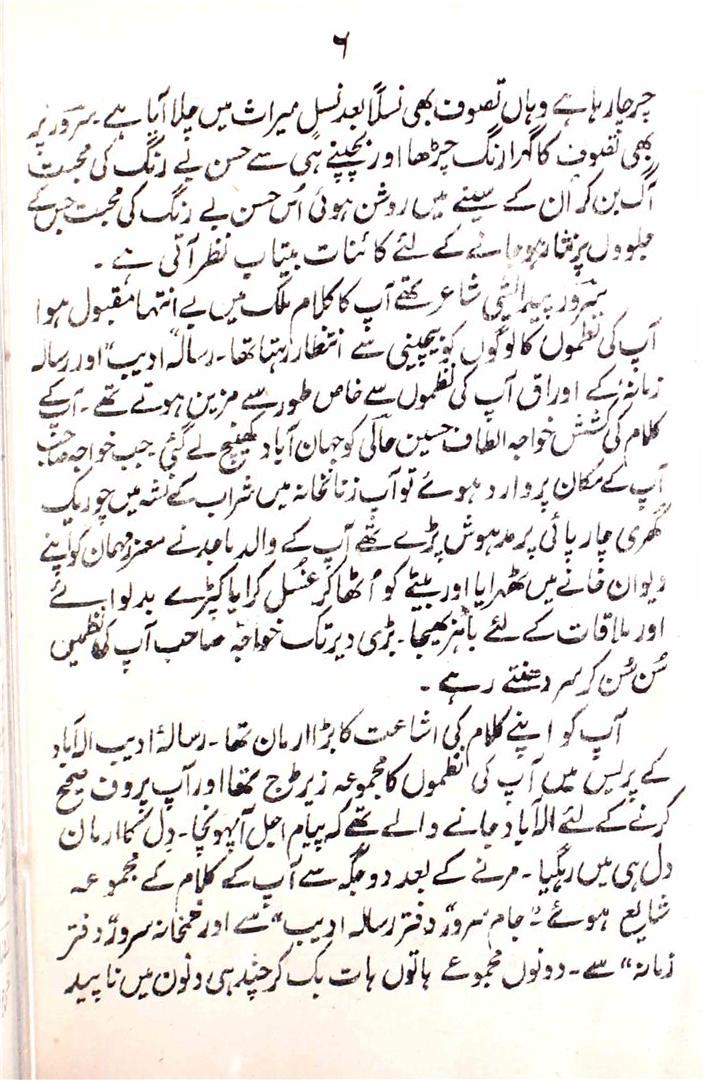 ۶
چرچا رہا ہے وہاں تصوف بھی نسلاً بعد نسل میراث میں چلا آیا ہے ۔ سرور پر
بھی تصوف کا گہرا رنگ چڑھا اور بچپنے ہی سے حسن بے رنگ کی محبت
آگ بن کر اُن کے سینے میں روشن ہوئی اُس حسن بے رنگ کی محبت جس کے
جلووں پر نثار ہو جانے کے لئے کائنات بیتاب نظر آتی ہے ۔
سرور پیدائشی شاعر تھے آپ کا کلام ملک میں بے انتہا مقبول ہوا
آپ کی نظموں کا لوگوں کو بیچینی سے انتظار رہتا تھا ۔ رسالہ "ادیب" اور رسالہ
زمانہ کے اوراق آپ کی نظموں سے خاص طور سے مزین ہوتے تھے ۔ آپ کے
کلام کی کشش خواجہ الطاف حسین حالی کو جہان آباد کھینچ لے گئی جب خواجہ صاحب
آپ کے مکان پر وارد ہوئے تو آپ زنانخانہ میں شراب کے نشہ میں چور ایک
کھری چارپائی پر مدہوش پڑے تھے آپ کے والد ماجد نے معزز مہمان کو اپنے
دیوان خانے میں ٹھہرایا اور بیٹے کو اُٹھا کر غسل کرایا کپڑے بدلوائے
اور ملاقات کے لئے باہر بھیجا ۔ بڑی دیر تک خواجہ صاحب آپ کی نظمیں
سُن سُن کر سر دھنتے رہے ۔
آپ کو اپنے کلام کی اشاعت کا بڑا ارمان تھا ۔ رسالۂ ادیب الہ آباد
کے پریس میں آپ کی نظموں کا مجموعہ زیر طبع تھا اور آپ پروف صحیح
کرنے کے لئے الہ آباد جانے والے تھے کہ پیام اجل آپہونچا ۔ دل کا ارمان
دل ہی میں رہگیا ۔ مرنے کے بعد دو جگہ سے آپ کے کلام کے مجموعہ
شایع ہوئے ۔ جام سرور دفتر رسالہ ادیب" سے اور خمخانہ سرور دفتر
زمانہ" سے ۔ دونوں مجموعے ہاتوں ہات بک کر چند ہی دنون میں ناپید